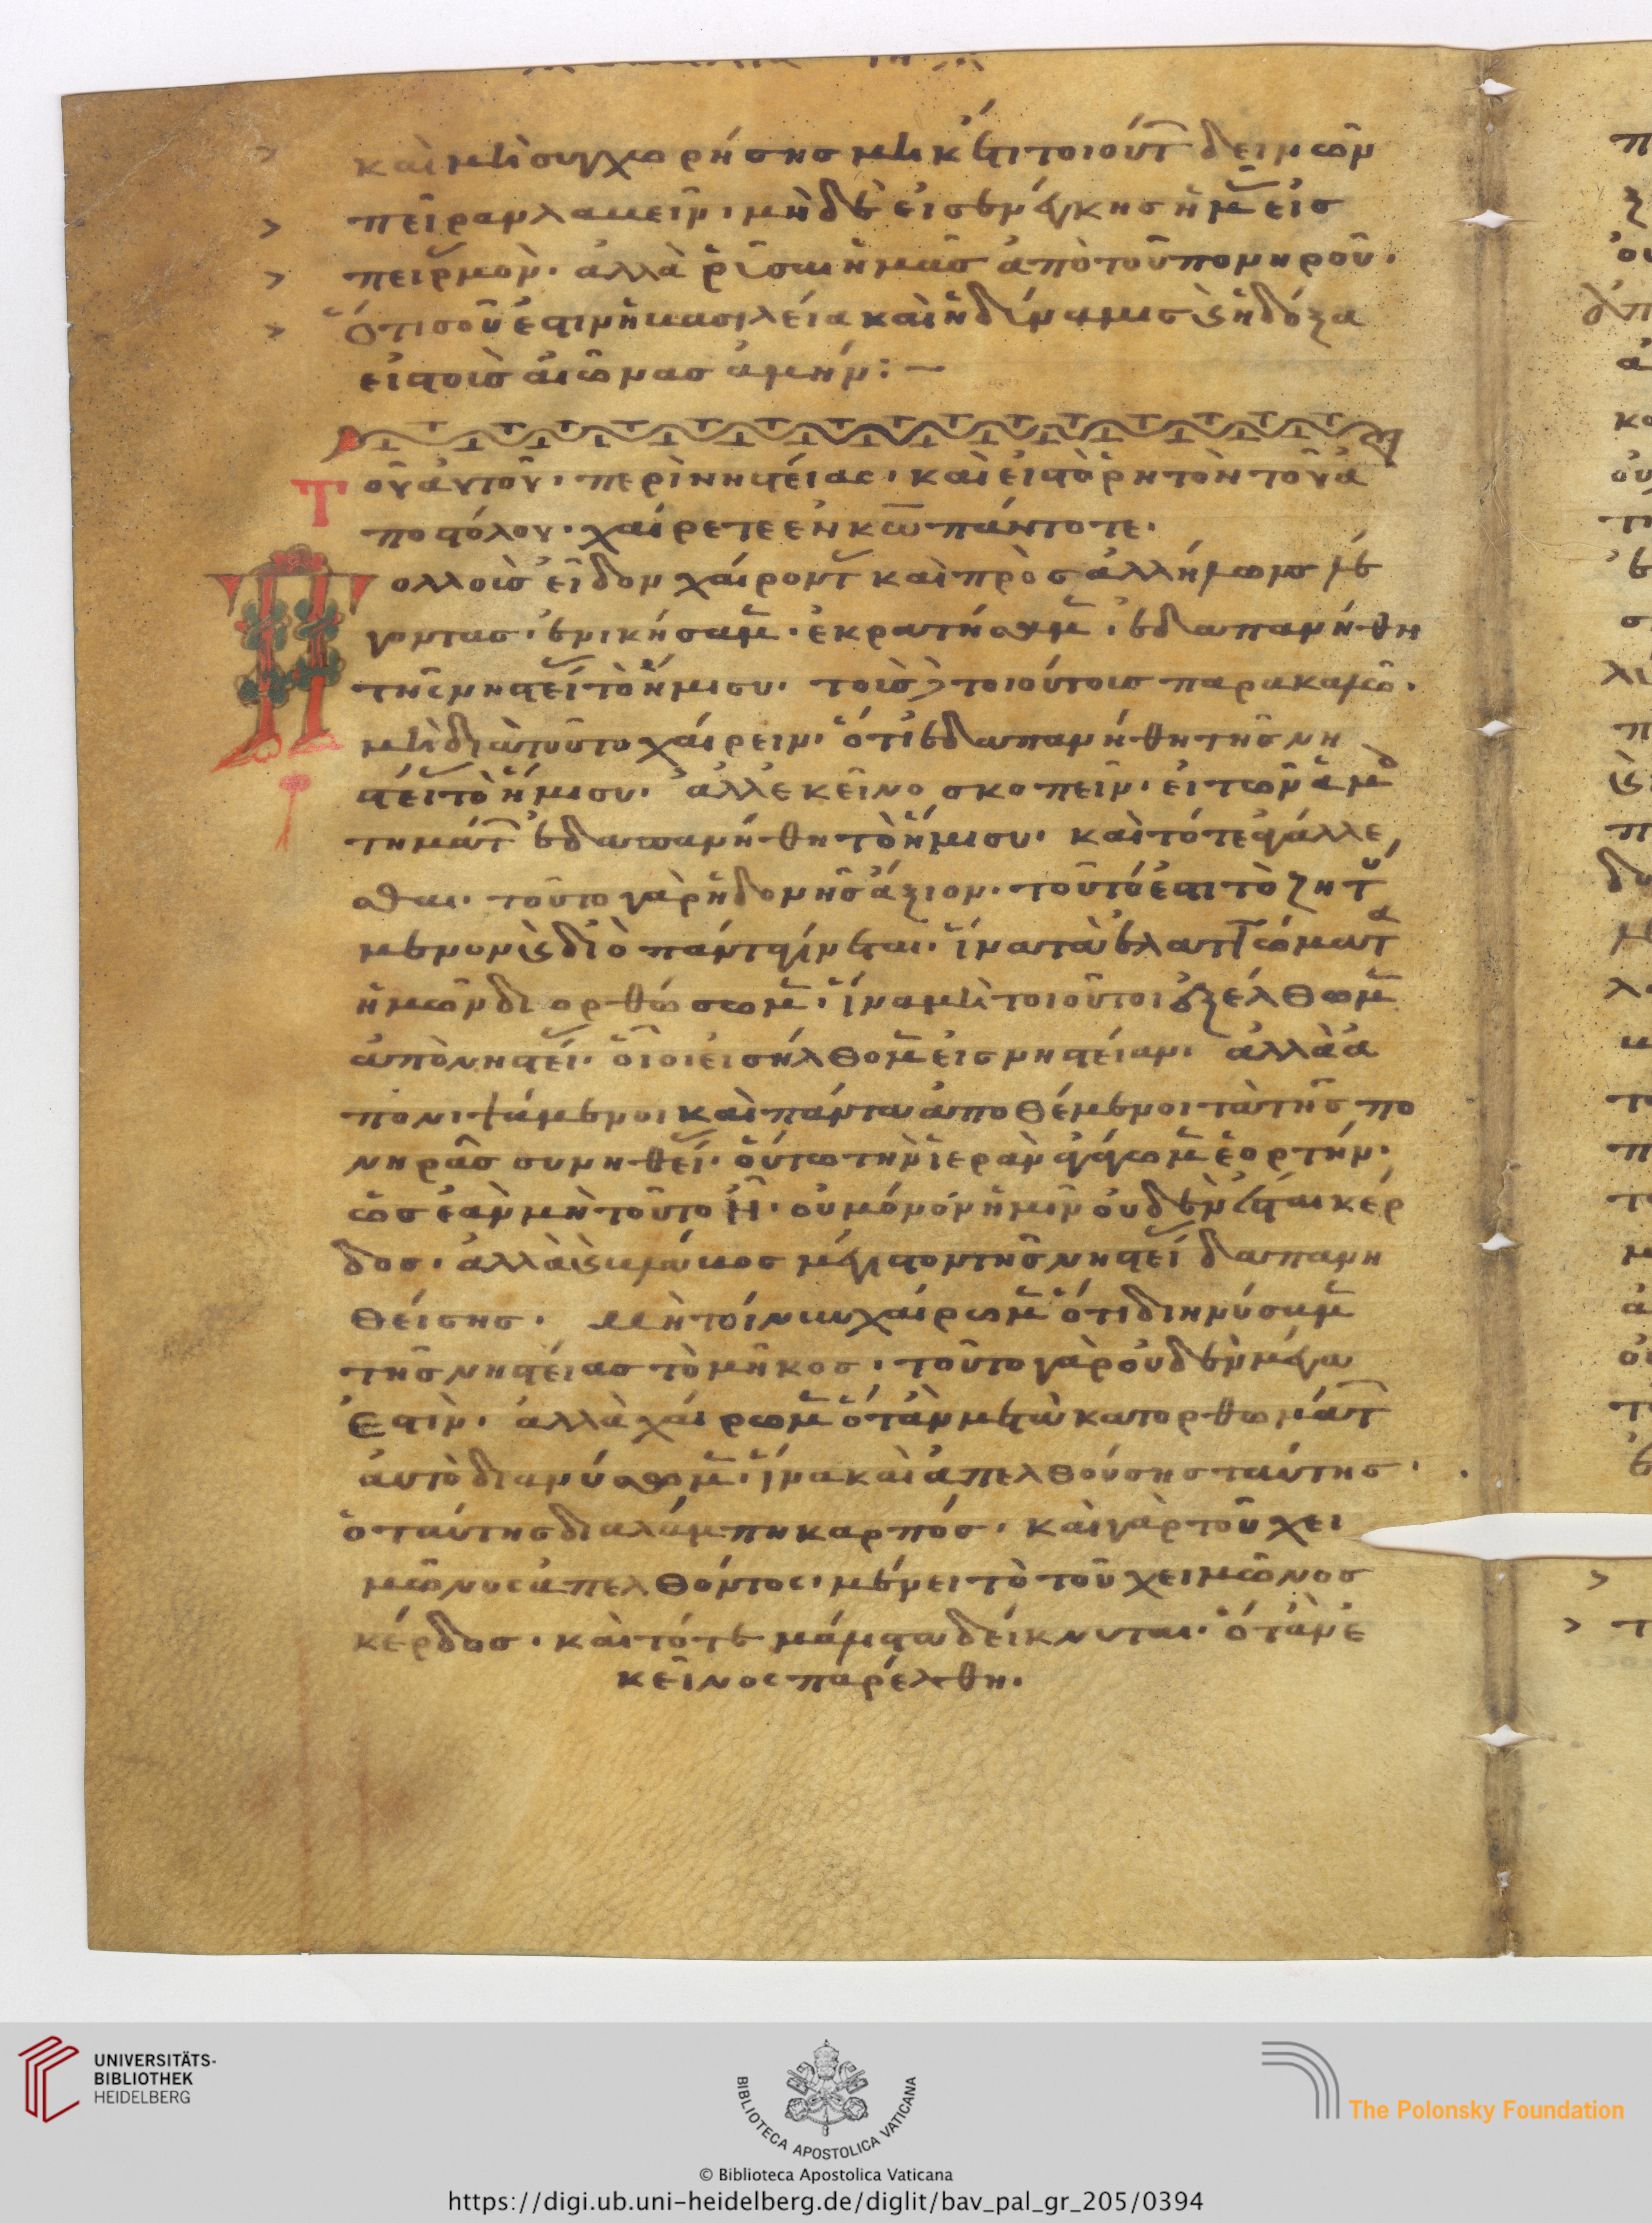 καὶ μὴ συγχωρήσης μηκέτι τοιούτ δεινῶν
πεῖραν λαβεῖν· μηδὲ εἰσενέγκης ἡμ εἰς
πειρμὸν· ἀλλὰ ῥῦσαι ἡμᾶς ἀπὸ τοῦ πονηροῦ·
ὅτι σοῦ ἐστιν ἡ βασιλεία καὶ ἡ δύναμις ϗ ἡ δόξα
εἰς τοὺς αἰῶνας ἀμήν:—
Τοῦ αὐτοῦ· περὶ νηστείας· καὶ εἰς τὸ ῥητὸν τοῦ ἀ
ποστόλου· χαίρετε ἐν κω πάντοτε·
Πολλοὺς εἶδον χαίροντ καὶ πρὸς ἀλλήλους λέ
γοντας· ἐνικήσαμ· ἐκρατήσαμ· ἐδαπανήθη
τῆς νηστεί τὸ ἥμισυ· τοὺς τοιούτους παρακαλῶ·
μὴ διὰ τοῦτο χαίρειν· ὅτι ἐδαπανήθη τῆς νη
στεί τὸ ἥμισυ· ἀλλ' ἐκεῖνο σκοπεῖν· εἰ τῶν ἁμ
τημάτ ἐδαπανήθη τὸ ἥμισυ· καὶ τότε ἀγάλλε
σθαι· τοῦτο γὰρ ἡδονῆς ἄξιον· τοῦτό ἐστι τὸ ζητ
μενον ϗ διὸ πάντα γίνεται· ἵνα τὰ ἐλαττώματ
ἡμῶν διορθώσωμ· ἵνα μὴ τοιοῦτοι ἐξέλθωμ
ἀπὸ νηστεί· οἷοι εἰσήλθομ εἰς νηστείαν· ἀλλὰ ἀ
πονιψάμενοι καὶ πάντα ἀποθέμενοι τὰ τῆς πο
νηρᾶς συνηθεί· οὕτω τὴν ἱερὰν ἄξωμ ἑορτήν·
ὡς ἐὰν μὴ τοῦτο ᾖ· οὐ μόνον ἡμῖν οὐδὲν ἔσται κέρ
δος· ἀλλὰ ϗ βλάβος μέγιστον τῆς νηστεί δαπανη
θείσης· Μὴ τοίνυν χαίρωμ ὅτι διηνύσαμ
τῆς νηστείας τὸ μῆκος· τοῦτο γὰρ οὐδὲν μέγα
ἐστὶν· ἀλλὰ χαίρωμ ὅταν μετὰ κατορθωμάτ
αὐτὸ διανύσωμ· ἵνα καὶ ἀπελθούσης ταύτης·
ὁ ταύτης διαλάμπη καρπός· καὶ γὰρ τοῦ χει
μῶνος ἀπελθόντος· μένει τὸ τοῦ χειμῶνος
κέρδος· καὶ τότε μάλιστα δείκνυται· ὅταν ἐ
κεῖνος παρέλθη·
UNIVERSITÄTS-
BIBLIOTHEK
HEIDELBERG
BIBLIOTECA APOSTOLICA VATICANA
The Polonsky Foundation
© Biblioteca Apostolica Vaticana
https://digi.ub.uni-heidelberg.de/diglit/bav_pal_gr_205/0394